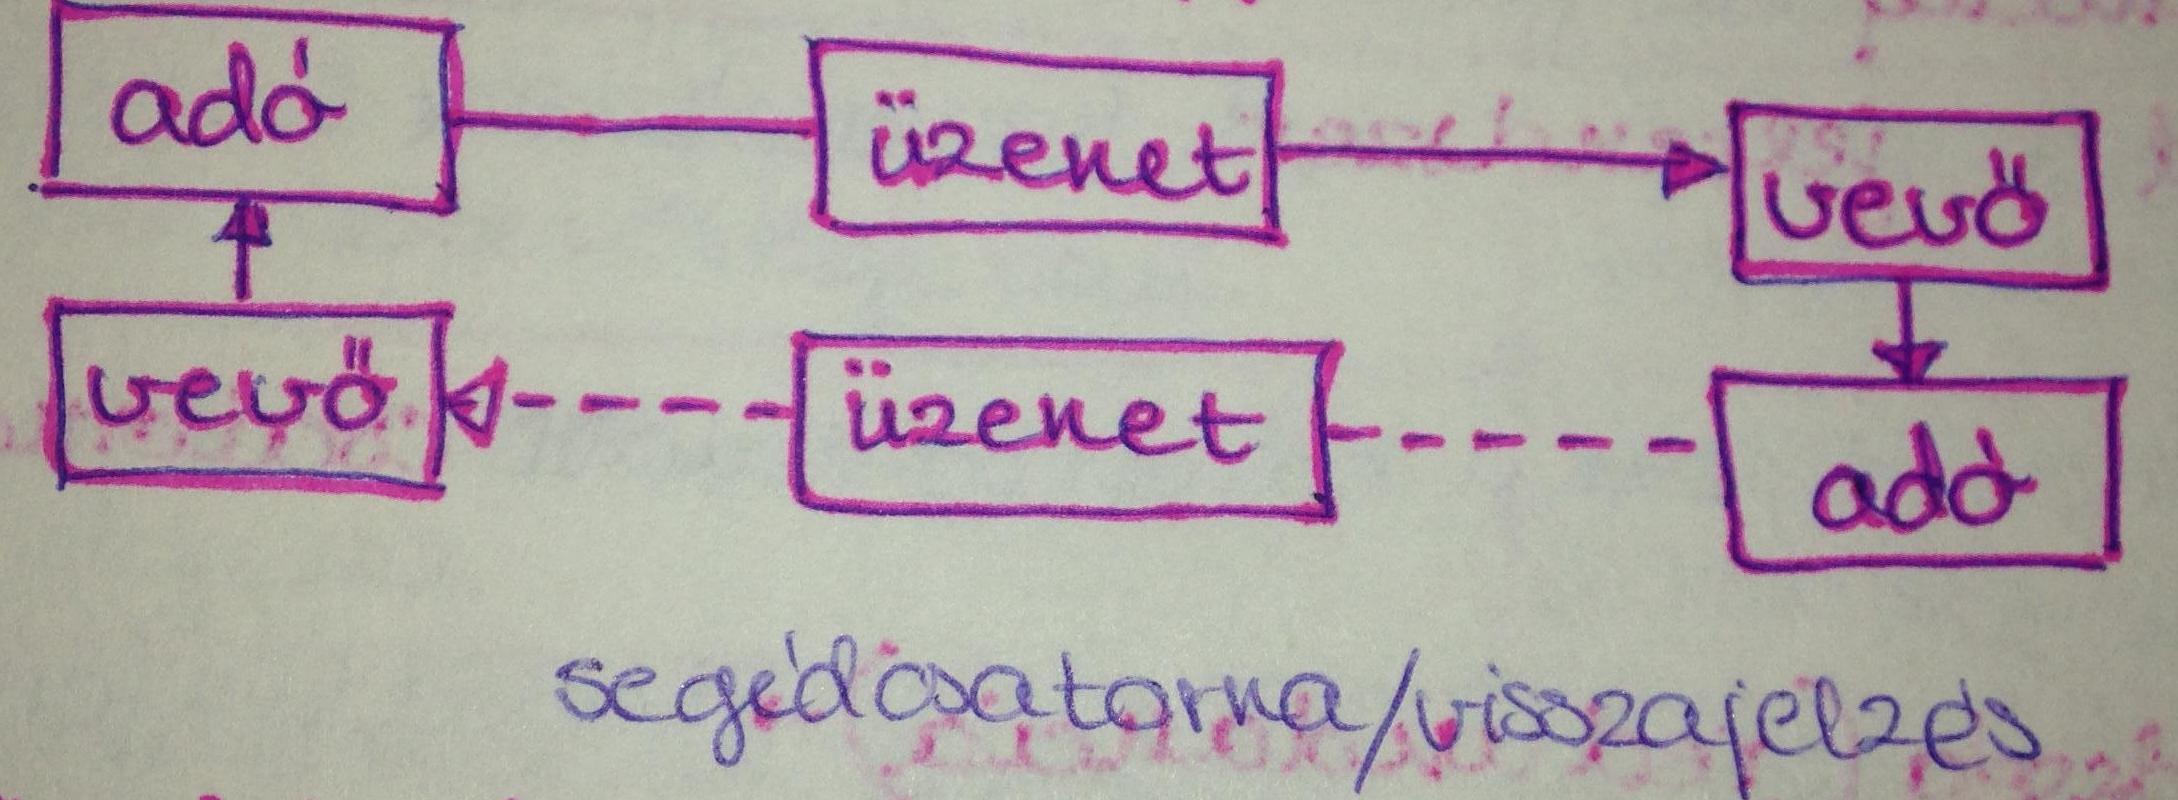 adó üzenet vevő
vevő üzenet adó
segédcsatorna/visszajelzés